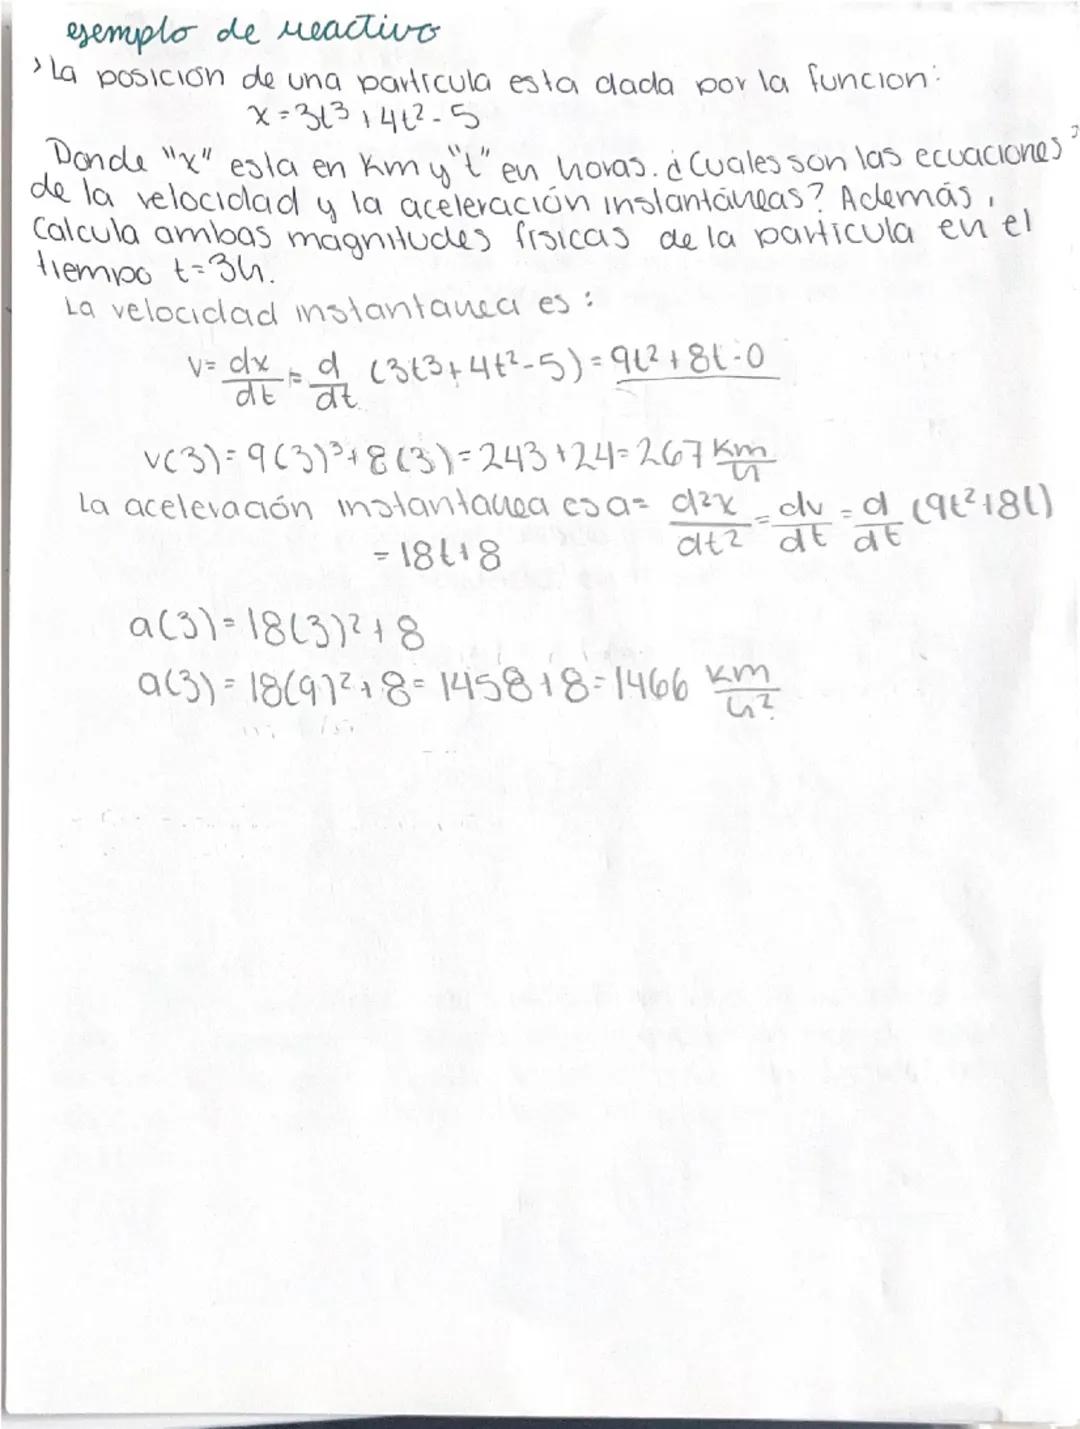 ejemplo de reactivo
> La posición de una partícula esta dada por la funcion:
x = 3t³ + 4t² - 5
Donde "x" esta en Km y "t" en horas. ¿Cuales son las ecuaciones
de la velocidad y la aceleración instantáneas? Además,
Calcula ambas magnitudes fisicas de la particula en el
tiempo t=3h.
La velocidad instantanea es:
v= dx/dt = d/dt (3t³+4t²-5) = 9t²+8t-0
v(3)= 9(3)³+8(3)=243+24=267 Km/h
La aceleración instantanea es a= d²x/dt² = dv/dt = d/dt (9t²+8t)
= 18t+8
a(3)=18(3)²+8
a(3)=18(9)²+8=1458+8=1466 Km/h²